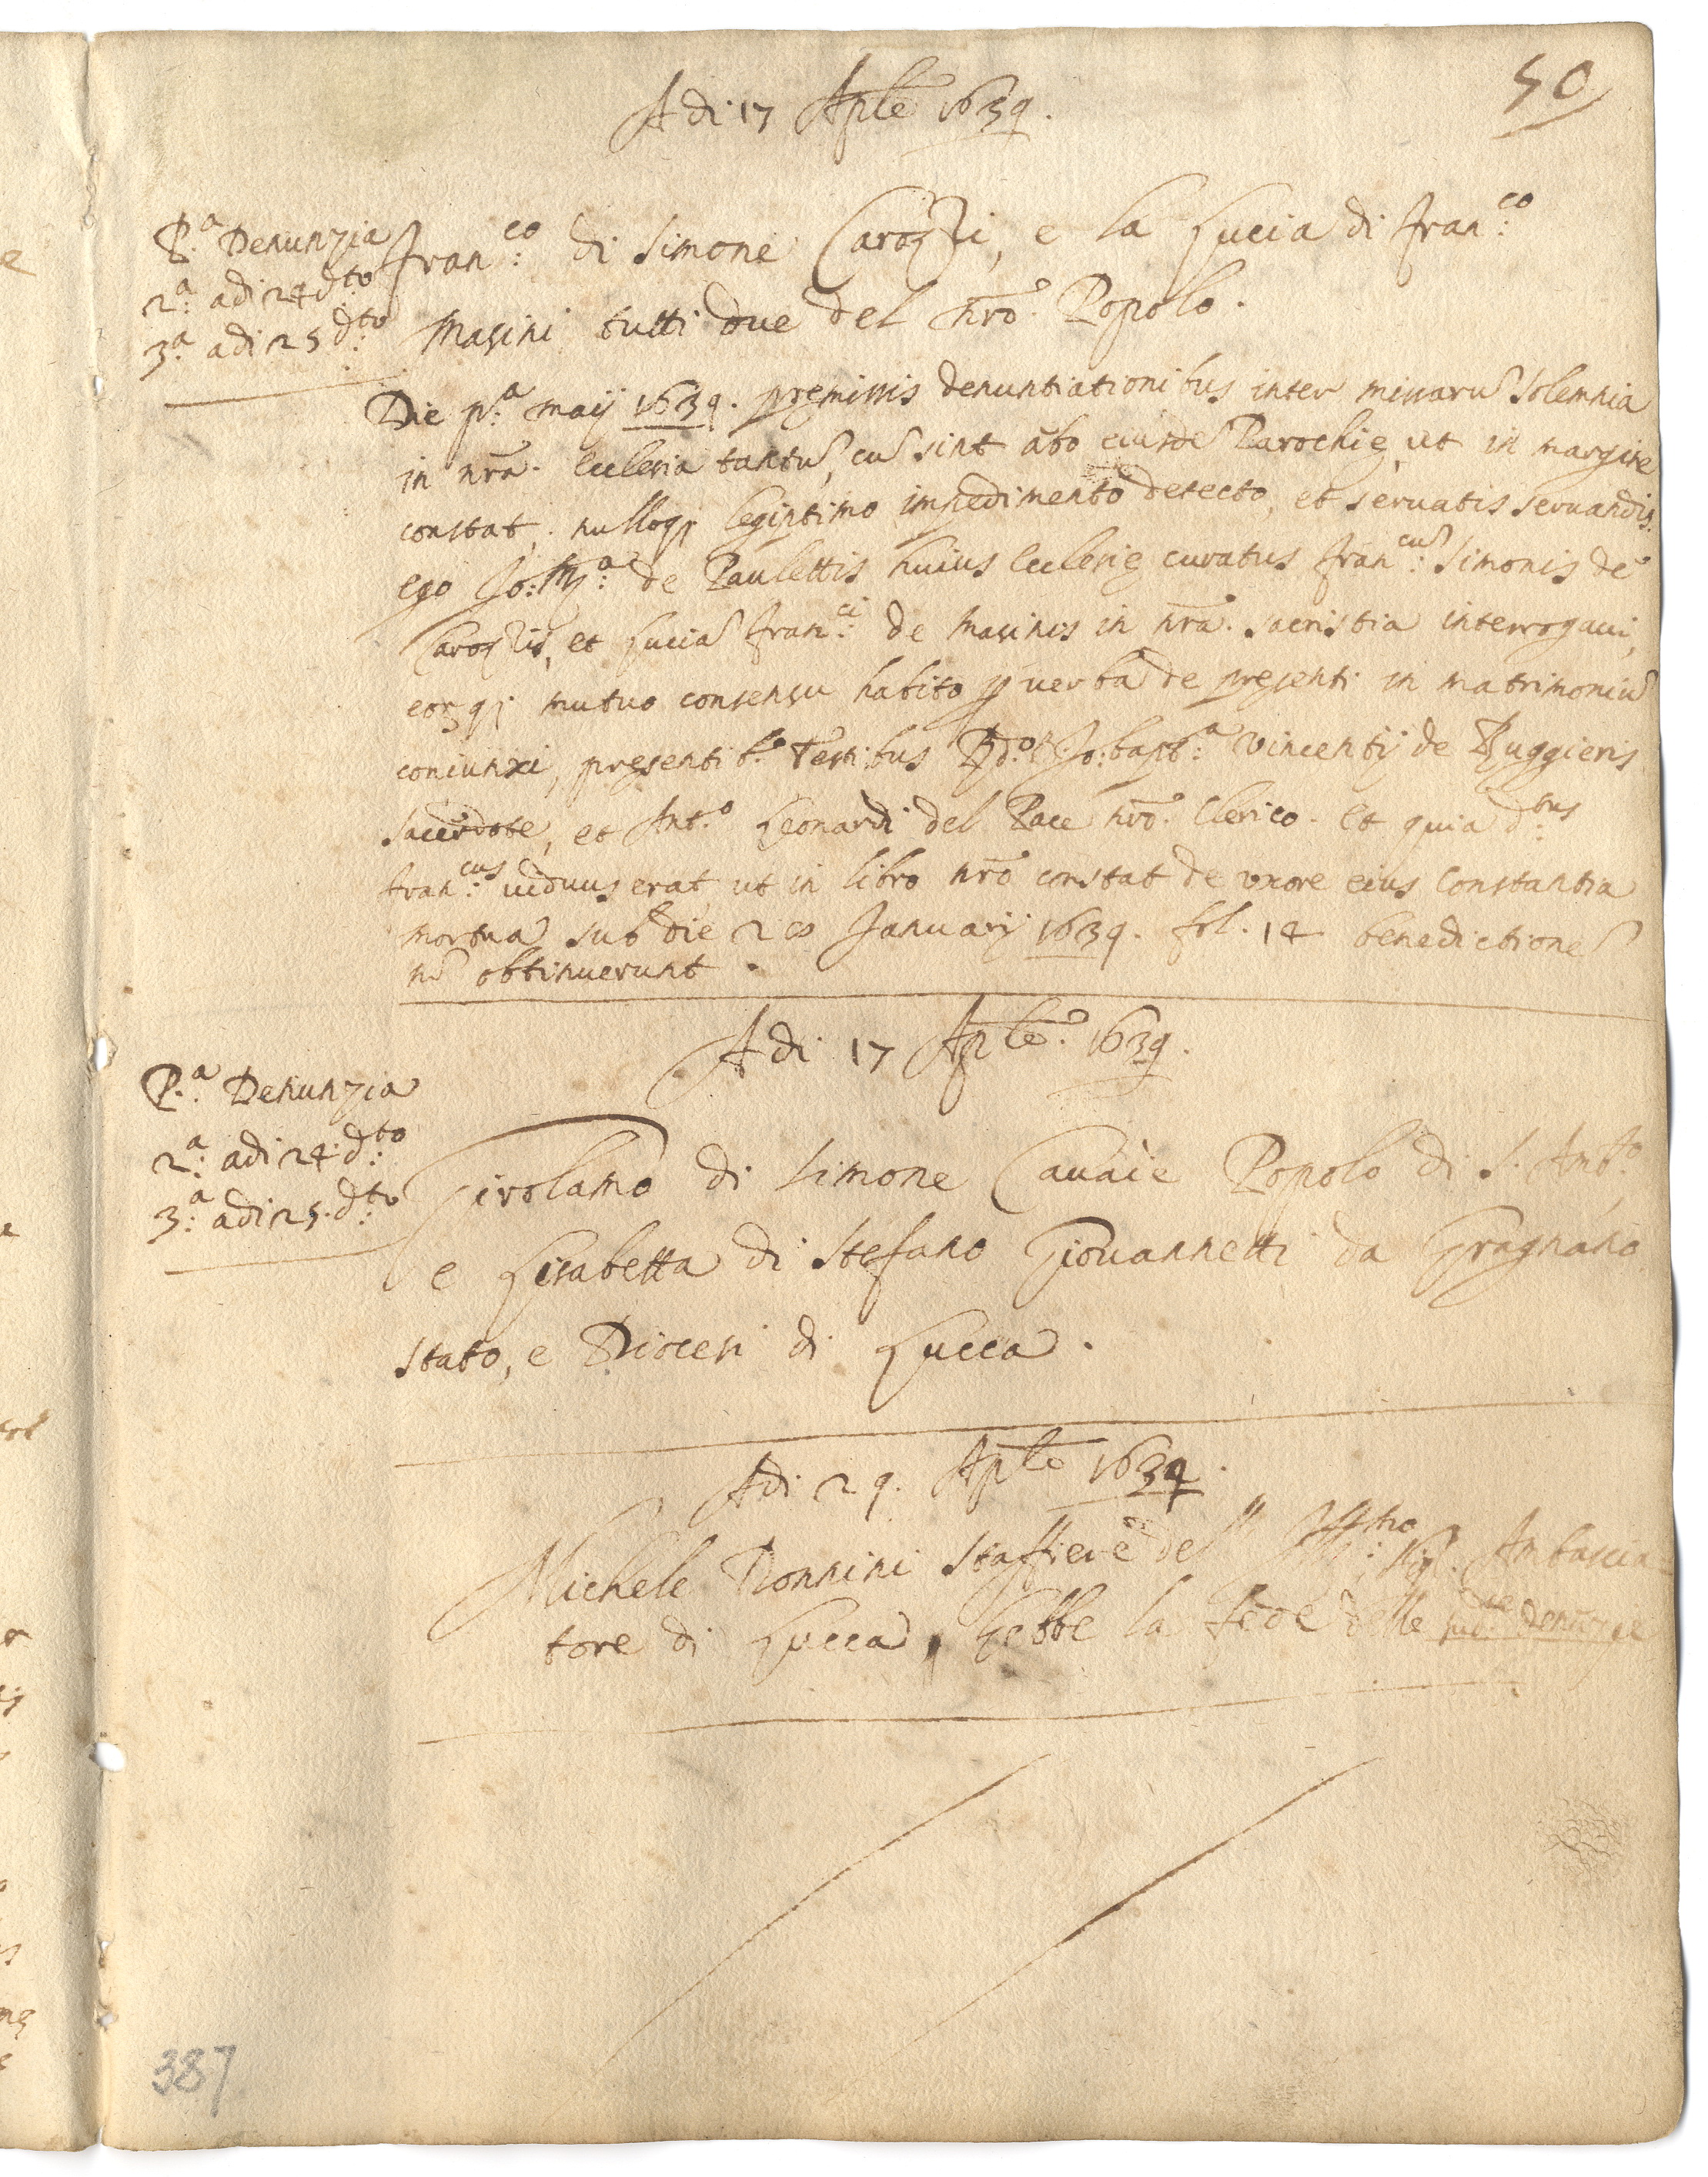 50
Adi 17 Aple 1639.
P.a Denunzia
2.a adi 24 d:to
3.a adi 25 d:to
Fran:co di Simone Carozzi, e la Lucia di Fran:co
Masini tutti due del nro. Popolo.
Die p.a maij 1639. premissis denuntiationibus inter missaru solemnia
in nra. Ecclesia tantu, cu sint abo eiusde Parochie, ut in margine
constat, nulloq; legiptimo impedimento detecto, et servatis servandis.
ego Jo: M:a de Paulettis huius Ecclesie curatus Fran:cu Simonis de
Carozzis, et Lucia Fran:ci de Masinis in nra. sacristia interrogavi,
eorq; mutuo consensu habito p verba de presenti in matrimoniu
coniunxi, presentib.s Testibus Rd.o P. Jo: bapt:a Vincentij de Ruggieris
sacerdote, et Ant.o Leonardi del Pace nro. Clerico. Et quia d:tus
Fran:cus viduus erat, ut in libro nro constat de uxore eius Constantia
mortua sub die 28 Januarij 1639. fol. 14 benedictione
no obtinuerunt.
Adi 17 Aple. 1639.
P.a Denunzia
2.a adi 24. d:to
3.a adi 25. d:to
Girolamo di Simone Cavaie Popolo di S. Ant.o
e Lisabetta di Stefano Giovannetti da Gragnano
stato, e Diocesi di Lucca.
Adi 29. Aple 1639.
Michele Nonnini staffiere dell' Ill:mo Sig.r Ambascia-
tore di Lucca, hebbe la fede delle sud.e denunzie
387